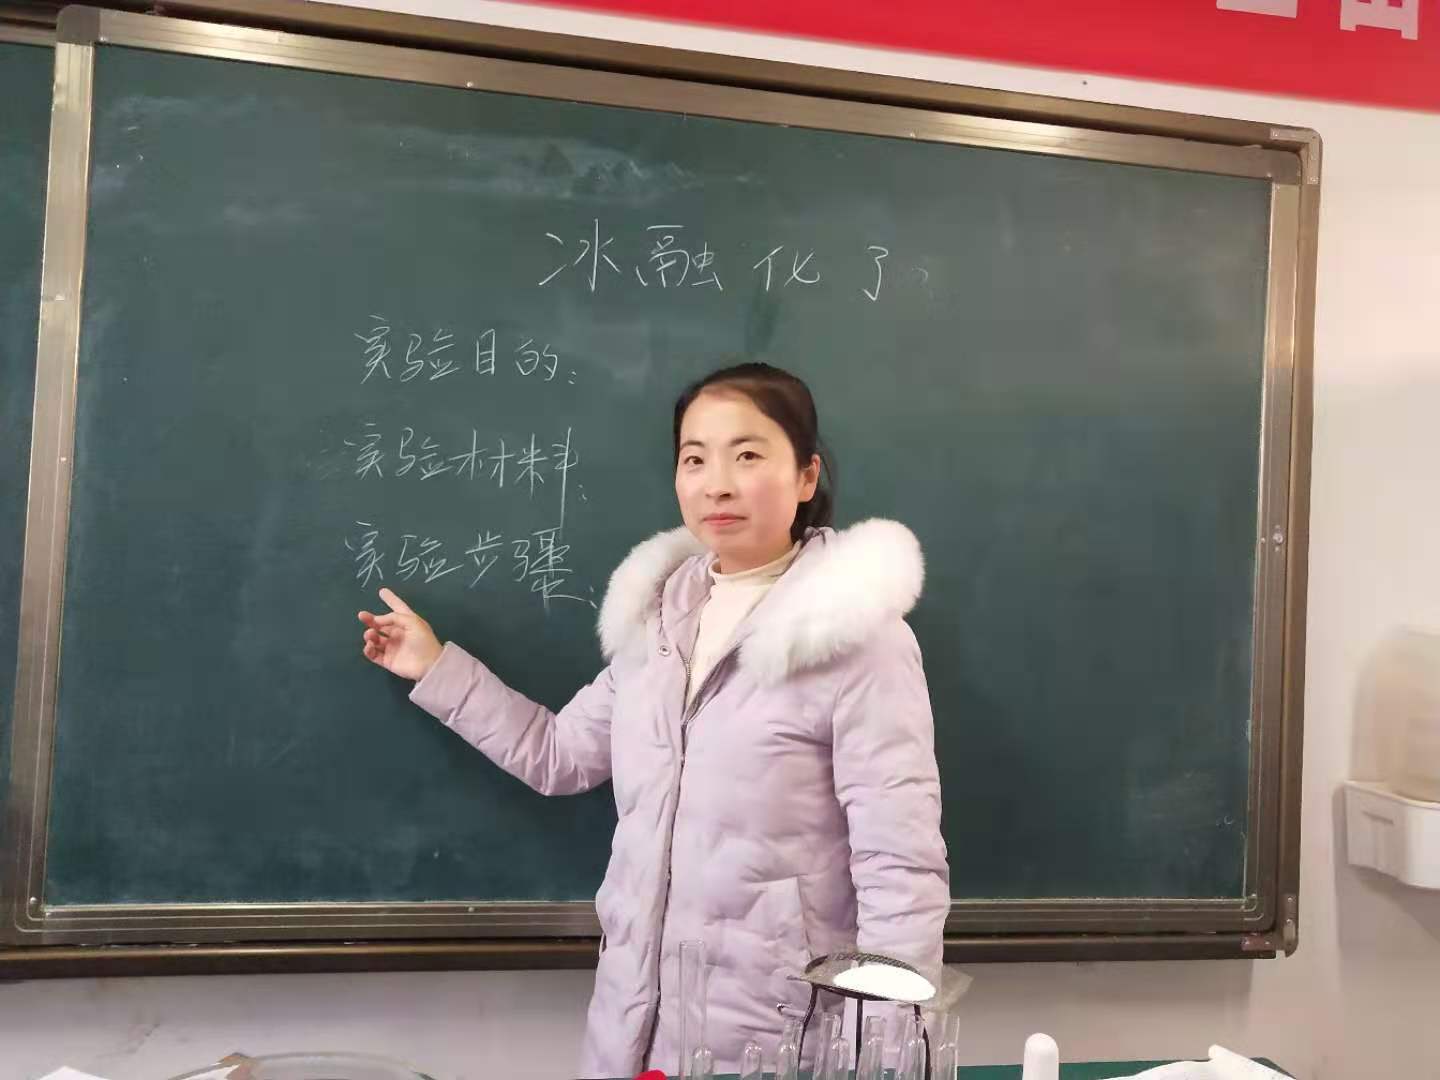 冰融化了
实验目的：
实验材料：
实验步骤：